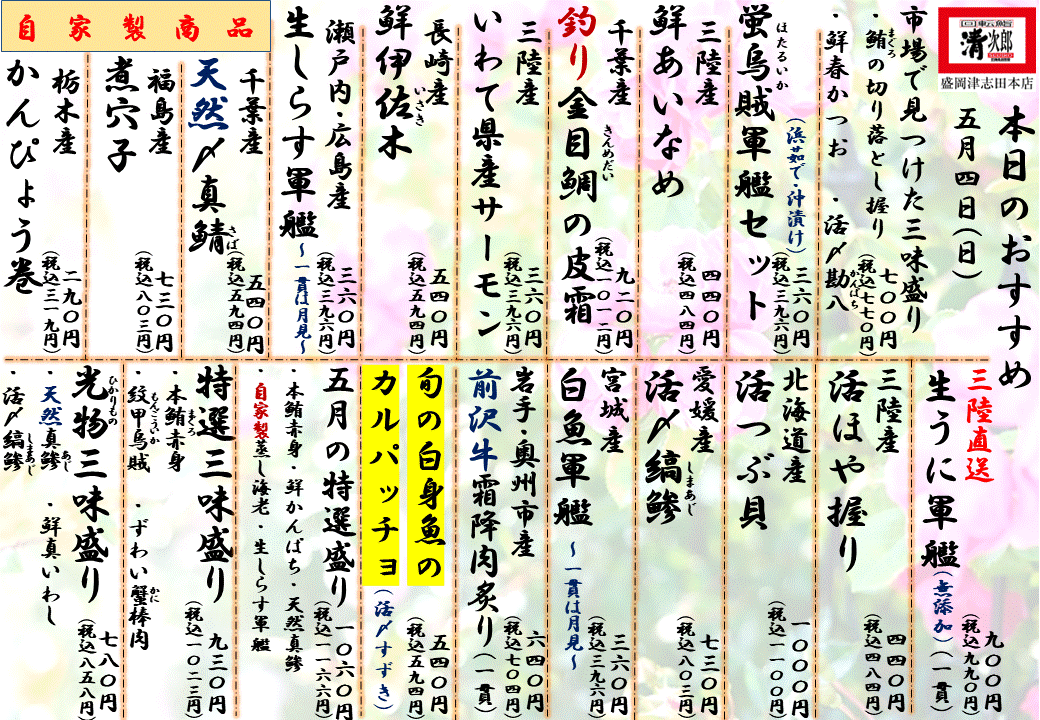 回転鮨
清次郎
盛岡津志田本店
本日のおすすめ
五月四日(日)
市場で見つけた三味盛り
・鮪の切り落とし握り
まぐろ
・鮮春かつお ・活〆勘八
かんぱち
七〇〇円
(税込七七〇円)
蛍烏賊軍艦セット
ほたるいか
(浜茹で・沖漬け)
三六〇円
(税込三九六円)
三陸産
鮮あいなめ
四四〇円
(税込四八四円)
千葉産
釣り金目鯛の皮霜
きんめだい
九二〇円
(税込一〇一二円)
三陸産
いわて県産サーモン
三六〇円
(税込三九六円)
長崎産
鮮伊佐木
いさき
五四〇円
(税込五九四円)
瀬戸内・広島産
生しらす軍艦
~一貫は月見~
三六〇円
(税込三九六円)
自家製商品
千葉産
天然〆真鯖
さば
五四〇円
(税込五九四円)
福島産
煮穴子
七三〇円
(税込八〇三円)
栃木産
かんぴょう巻
二九〇円
(税込三一九円)
三陸直送
生うに軍艦
(無添加)(一貫)
九〇〇円
(税込九九〇円)
三陸産
活ほや握り
四四〇円
(税込四八四円)
北海道産
活つぶ貝
一〇〇〇円
(税込一一〇〇円)
愛媛産
活〆縞鯵
しまあじ
七三〇円
(税込八〇三円)
宮城産
白魚軍艦
~一貫は月見~
三六〇円
(税込三九六円)
岩手・奥州市産
前沢牛霜降肉炙り(一貫)
六四〇円
(税込七〇四円)
旬の白身魚の
カルパッチョ
(活〆すずき)
五四〇円
(税込五九四円)
五月の特選盛り
一〇六〇円
(税込一一六六円)
・本鮪赤身・鮮かんぱち・天然真鯵
・自家製蒸し海老・生しらす軍艦
特選三味盛り
九三〇円
(税込一〇二三円)
・本鮪赤身
まぐろ
・紋甲烏賊 ・ずわい蟹棒肉
もんこういか
かに
光物三味盛り
ひかりもの
七八〇円
(税込八五八円)
・天然真鯵 ・鮮真いわし
あじ
・活〆縞鯵
しまあじ